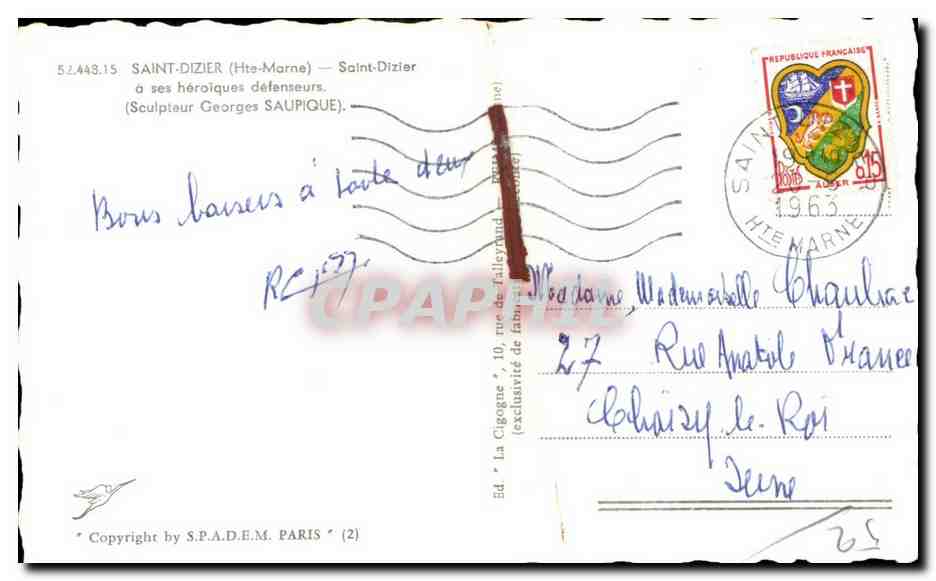 52.448.15 SAINT-DIZIER (Hte-Marne) — Saint-Dizier
à ses héroïques défenseurs.
(Sculpteur Georges SAUPIQUE).
Bons baisers à toute deux
Ed. " La Cigogne ", 10, rue de Talleyrand —
(exclusivité de
REPUBLIQUE FRANÇAISE
POSTES
0,15
ALGER
SAINT
1963
HTE MARNE
CPAPHIL
Madame, Mademoiselle
27 Rue Anatole France
Choisy-le-Roi
Seine
" Copyright by S.P.A.D.E.M. PARIS " (2)
52